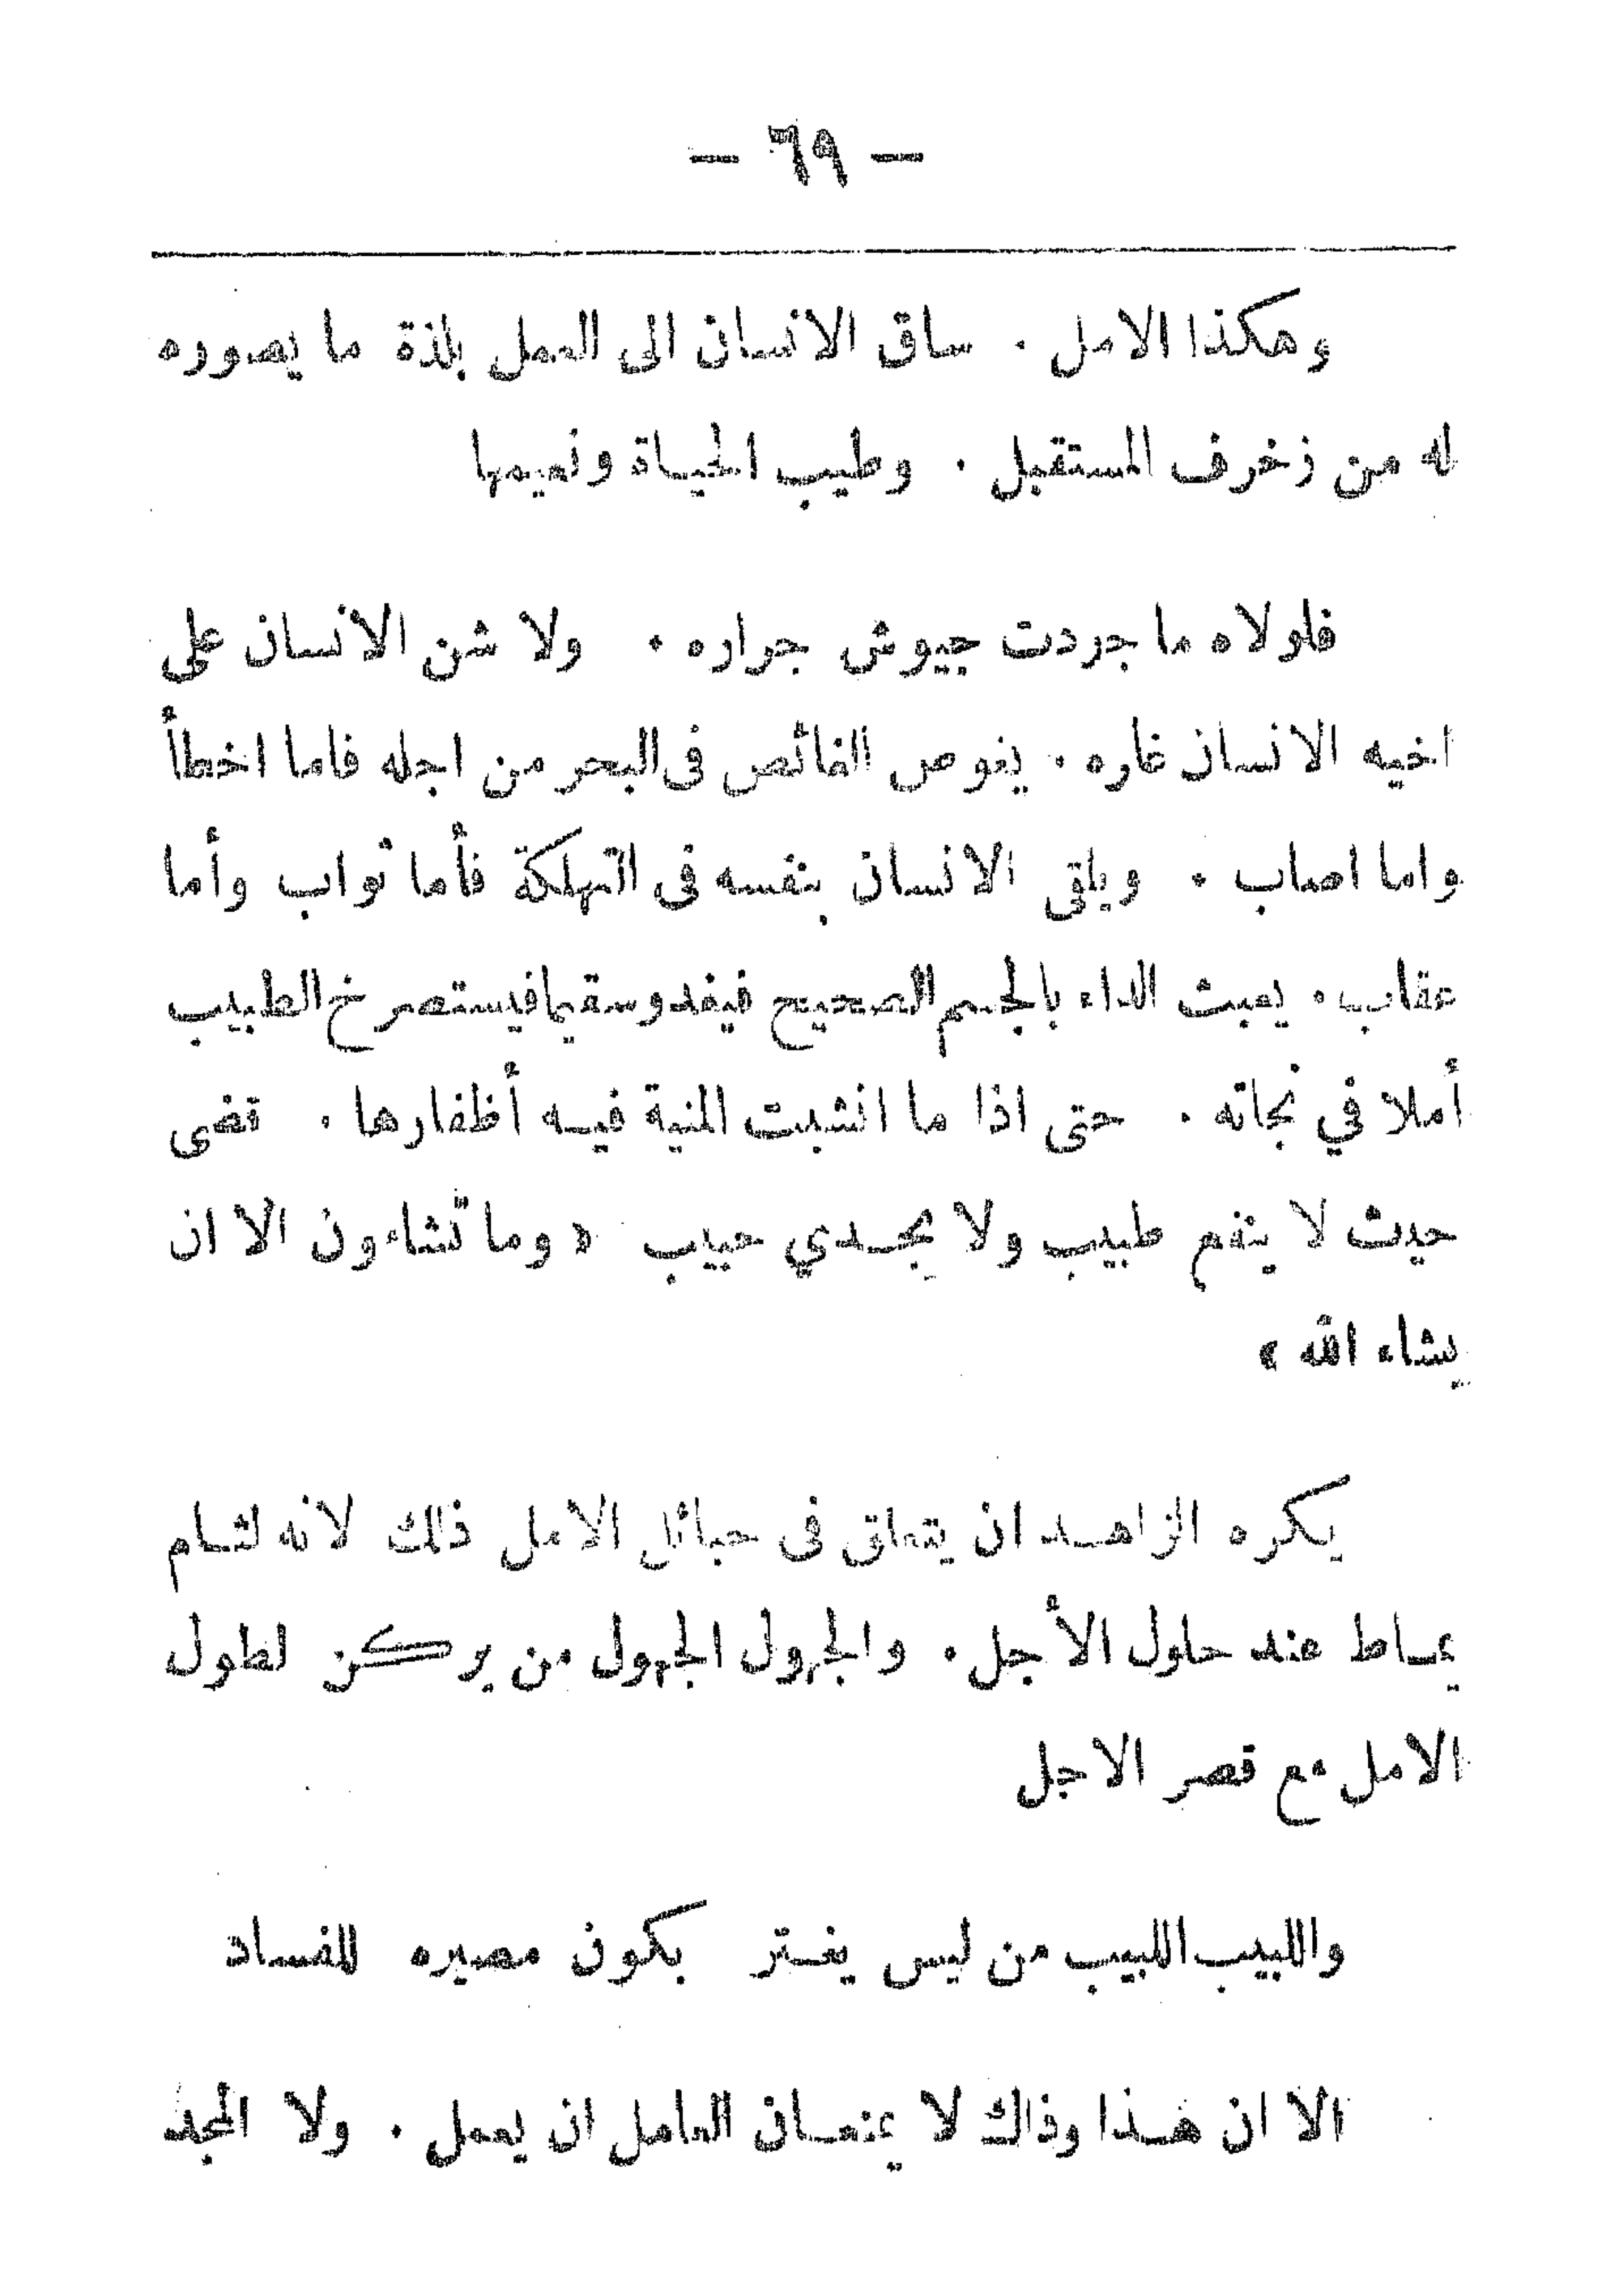 — ٦٩ —
وهكذا الامل . ساق الانسان الى العمل بلذة ما يصوره
له من زخرف المستقبل . وطيب الحياة ونعيمها
فلولاه ما جردت جيوش جراره . ولا شن الانسان على
اخيه الانسان غاره . يغوص الغائص فى البحر من اجله فاما اخطأ
واما اصاب . ويلقى الانسان بنفسه فى التهلكة فأما ثواب وأما
عقاب . يعبث الداء بالجسم الصحيح فيغدو سقيما فيستصرخ الطبيب
أملا في نجاته . حتى اذا ما انشبت المنية فيه أظفارها . قضى
حيث لا ينفع طبيب ولا يجدي حبيب « وما تشاءون الا ان
يشاء الله »
يكره الزاهد ان يتعلق فى حبائل الامل ذلك لانه لثام
يماط عند حلول الأجل . والجهول الجهول من يركن لطول
الامل مع قصر الاجل
واللبيب اللبيب من ليس يغتر بكون مصيره للفساد
الا ان هذا وذاك لا يمنعان العامل ان يعمل . ولا المجد